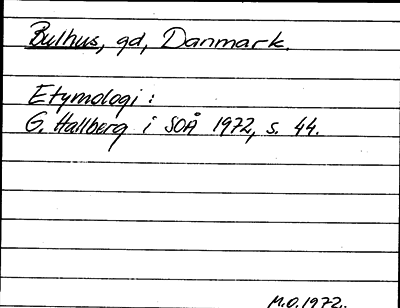 Bulhus, gd, Danmark.
Etymologi:
G. Hallberg i SOÅ 1972, s. 44.
M.O. 1972.